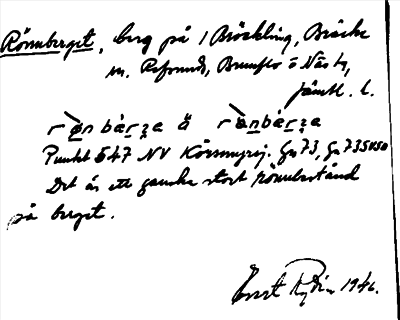 Rönnberget, berg på / Bräckling, Bräcke
m. Refsunds, Brunflo o Näs
Jämtl. l.
rǜn bárʒa ä rǜnbárʒa
Punkt 547 NV Körmyrsj. Gs 73, Gs 73SVSO
Det är ett ganska stort rönnbestånd
på berget.
1946.